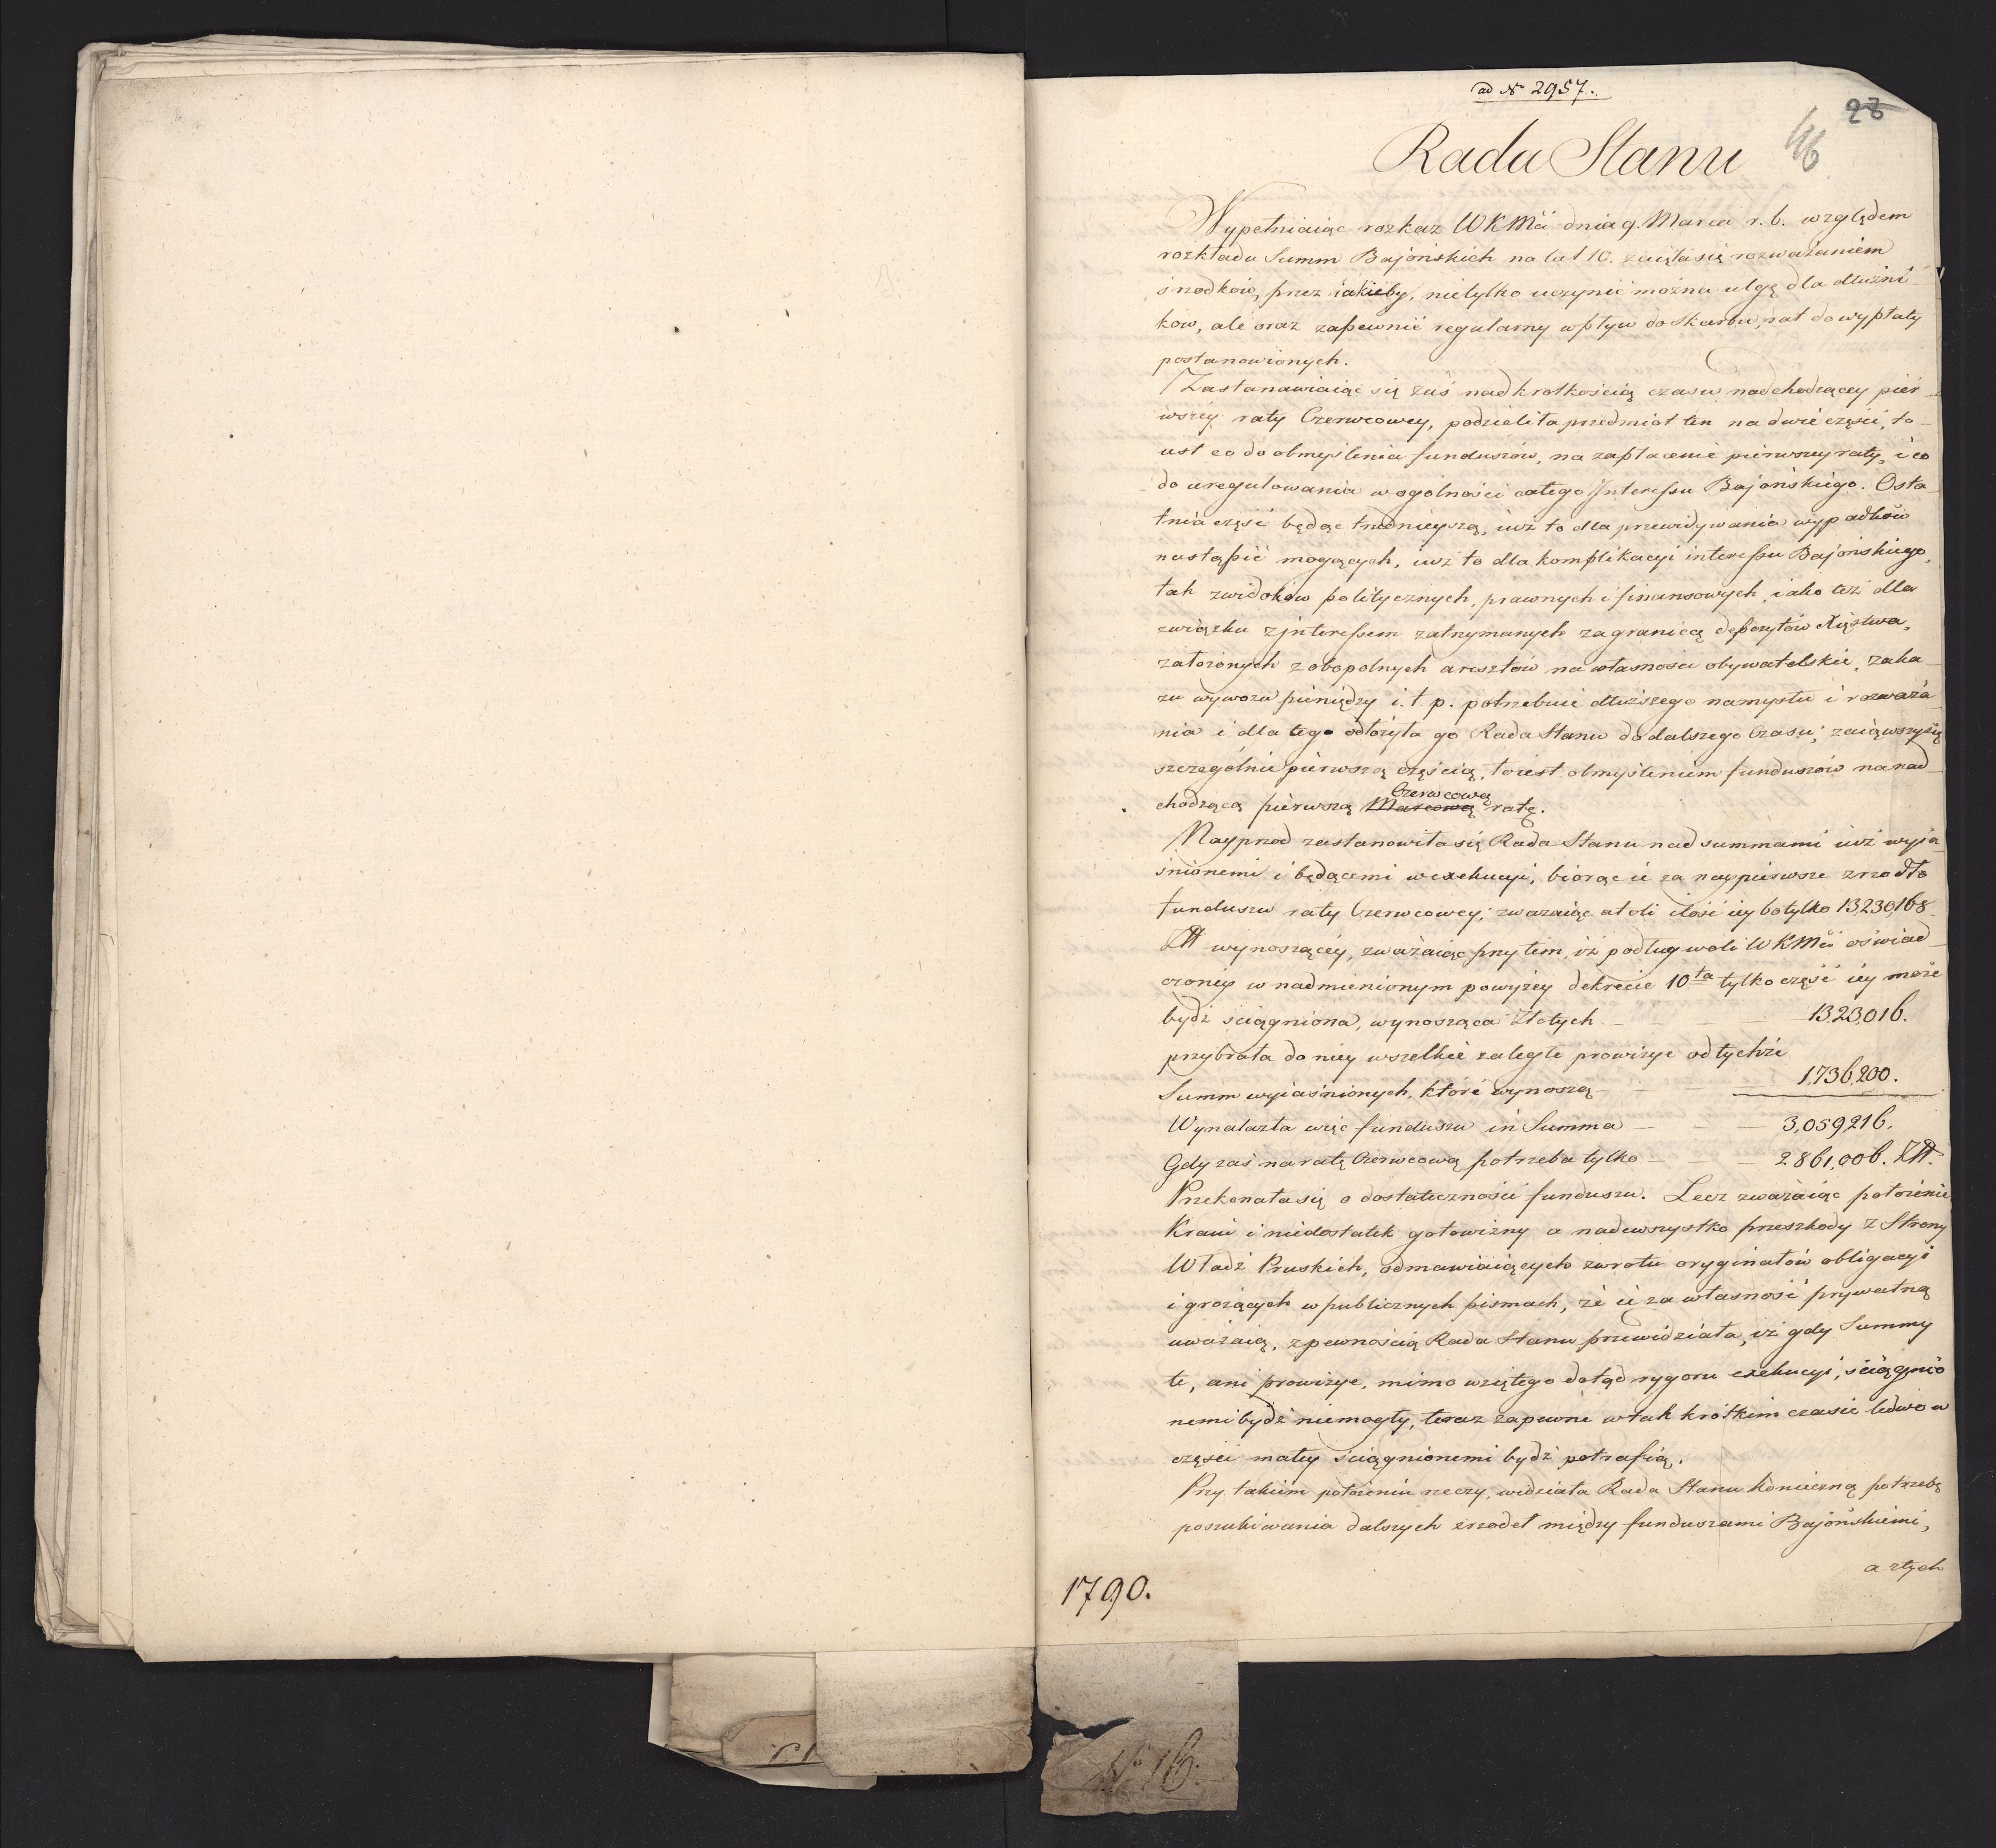 ad Nr 2957.
28
46
Rada Stanu
Wypełniaiąc rozkaz WKMci dnia 9. Marca r. b. względem
rozkładu Summ Bajońskich na lat 10. zaięła się rozważaniem
środków, przez iakieby, nietylko uczynić można ulgę dla dłużni-
ków, ale oraz zapewnić regularny wpływ do Skarbu, rat do wypłaty
postanowionych.
Zastanawiaiąc się zaś nad krotkością czasu nadchodzącey pier-
wszey raty Czerwcowey, podzieliła przedmiot ten na dwie części, to-
iest co do obmyślenia funduszów, na zapłacenie pierwszey raty, i co
do uregulowania w ogolności całego Interessu Bajońskiego. Osta-
tnia część będąc trudnieyszą, iuż to dla przewidywania wypadków
nastąpić mogących, iuż to dla komplikacyi interessu Bajońskiego,
tak z widoków politycznych, prawnych i finansowych, iako też dla
związku z jnteressem zatrzymanych za granicą depozytów Xięstwa,
założonych z obopolnych aresztów na własności obywatelskie, zaka-
zu wywozu pieniędzy i. t. p. potrzebuie dłuższego namysłu i rozważa-
nia i dla tego odłożyła go Rada Stanu do dalszego Czasu; zaiąwszy się
szczególnie pierwszą częścią, toiest obmyśleniem funduszów na nad-
Czerwcową
chodzącą pierwszą Marcową ratę.
Nayprzod zastanowiła się Rada Stanu nad summami iuż wyia-
śnionemi i będącemi w exekucyi, biorąc ie za naypierwsze zrzodło
funduszu raty Czerwcowey; zważaiąc atoli ilość iey bo tylko 13,230,168
Złł wynoszącéy, zważaiąc przytem, iż podług woli WKMci oświad-
czoney w nadmienionym powyżey dekrecie 10ta tylko część iey może
bydź ściągniona, wynosząca Złotych — — — 1323,016.
przybrała do niey wszelkie zaległe prowizye od tychże
Summ wyiaśnionych, które wynoszą — — — 1,736,200.
Wynalazła więc funduszu in Summa — — — 3,059,216.
Gdy zaś na ratę Czerwcową potrzeba tylko — — — 2861,006. Złł.
Przekonała się o dostateczności funduszu. Lecz zważaiąc położenie
Kraiu i niedostatek gotowizny a nadewszystko przeszkody z Strony
Władz Pruskich, odmawiaiących zwrotu oryginałów obligacyi
i grożących w publicznych pismach, że ie za własność prywatną
uważaią, z pewnością Rada Stanu przewidziała, iż gdy Summy
te, ani prowizye, mimo wziętego dotąd rygoru exekucyi, ściągnio-
nemi bydź niemogły, teraz zapewne w tak krótkim czasie ledwo w
części małey ściągnionemi bydź potrafią.
Przy takiem położeniu rzeczy, widziała Rada Stanu konieczną potrzebę
poszukiwania dalszych zrzodeł między funduszami Bajońskiemi,
a z tych
1790.
No 16.